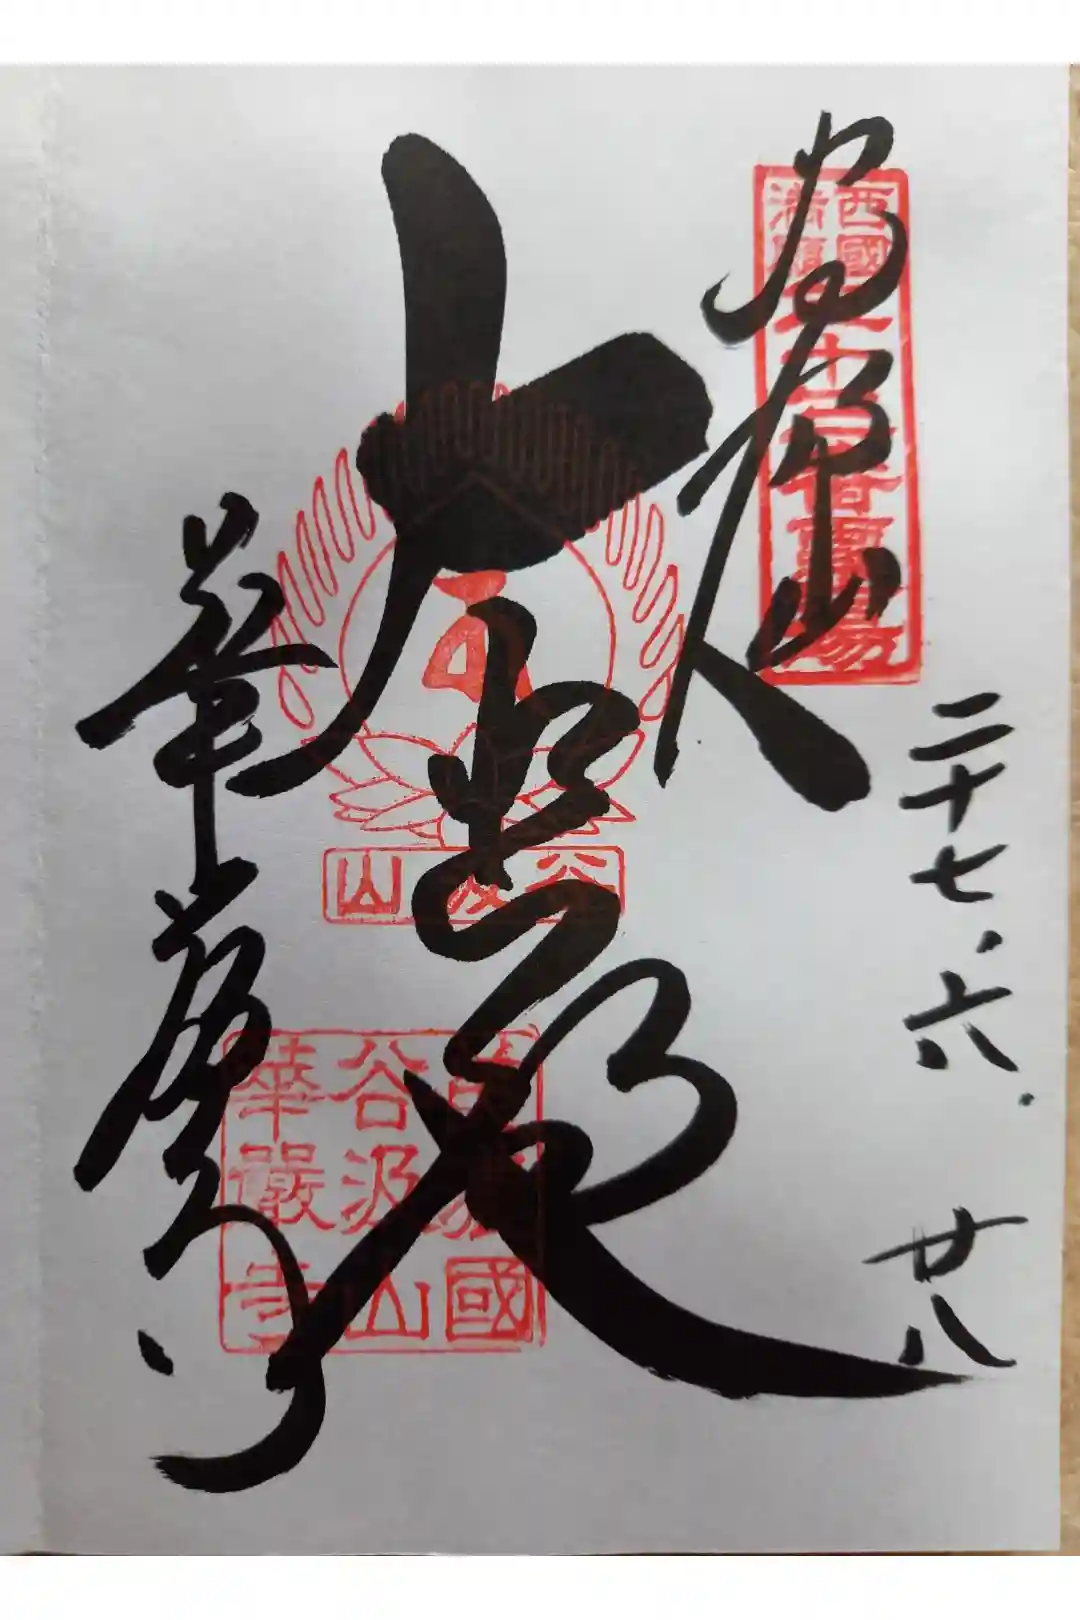 西國
満願
三十三番靈場
二十七、六.廿八
大悲殿
谷汲山
美濃國
谷汲山
華嚴寺
華厳寺